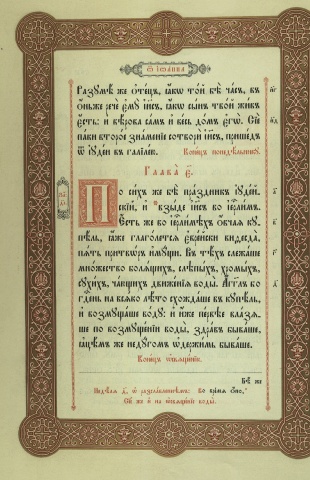 Ѿ ІѠАННА
Разꙋмѣ же ѻтецъ, ꙗкѡ той бѣ часъ, въ
ньже рече ємꙋ і҆и҃съ, ꙗкѡ сынъ твой живъ
єсть: и вѣрова самъ и весь домъ єгѡ. Сїѐ
паки второе знаменїе сотвори і҆и҃съ, пришедъ
ѿ іꙋдеи въ галїлею. Конецъ понедѣльникꙋ.
Глава є҃.
По сихъ же бѣ праздникъ іꙋдей-
скїй, и взыде і҆и҃съ во і҆ерⷭ҇лимъ.
Єсть же во і҆ерⷭ҇лимѣхъ ѻвчаѧ кꙋ-
пѣль, ꙗже глаголетсѧ єврейски виѳесда,
пѧть притвѡръ имꙋщи. Въ тѣхъ слежаше
множество болѧщихъ, слѣпыхъ, хромыхъ,
сꙋхихъ, чающихъ движенїѧ воды. Аг҃глъ бо
гдⷭ҇ень на всѧко лѣто схождаше въ кꙋпѣль,
и возмꙋщаше водꙋ: и иже первѣе влазѧ-
ше по возмꙋщенїи воды, здравъ бываше,
ꙗцѣмъ же недꙋгомъ ѡдержимь бываше.
Конецъ ѡсвѧщенїю.
Бѣ же
Недѣлѧ д҃, ѡ разслабленнѣмъ: Во времѧ ѻно,
Сїѐ же и на ѡсвѧщенїе воды.